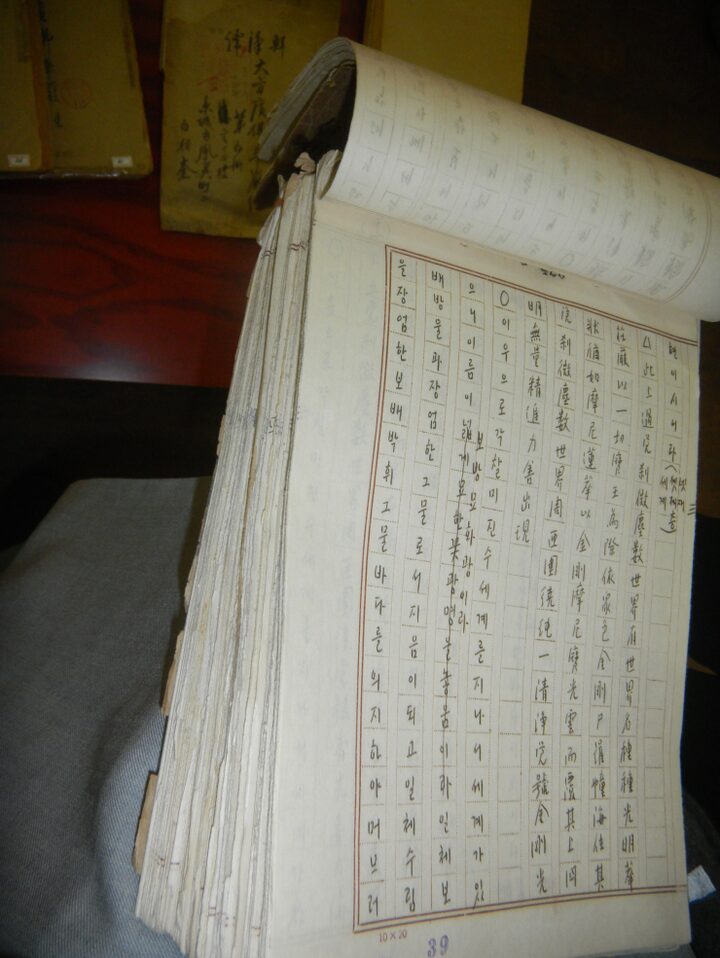 현이시니라
△此上過刹微塵數世界有世界名種種光明華
莊嚴以一切寶王為際依衆色金剛尸羅幢海住其
狀猶如摩尼蓮華以金剛摩尼寶光雲而覆其上四
刹微塵數世界周匝圍繞純一清淨覚號金剛光
明無量精進力善出現
○이우으로각찰미진수세계를지나서세계가있
으니이름이보방묘화광이라넓게묘한꽃광명을놓음이라일체보
배방울과장엄한그물로서지음이되고일체수림
을장엄한보배박휘그물바다를의지하야머므러
10×20
39
大方廣佛
白相奎